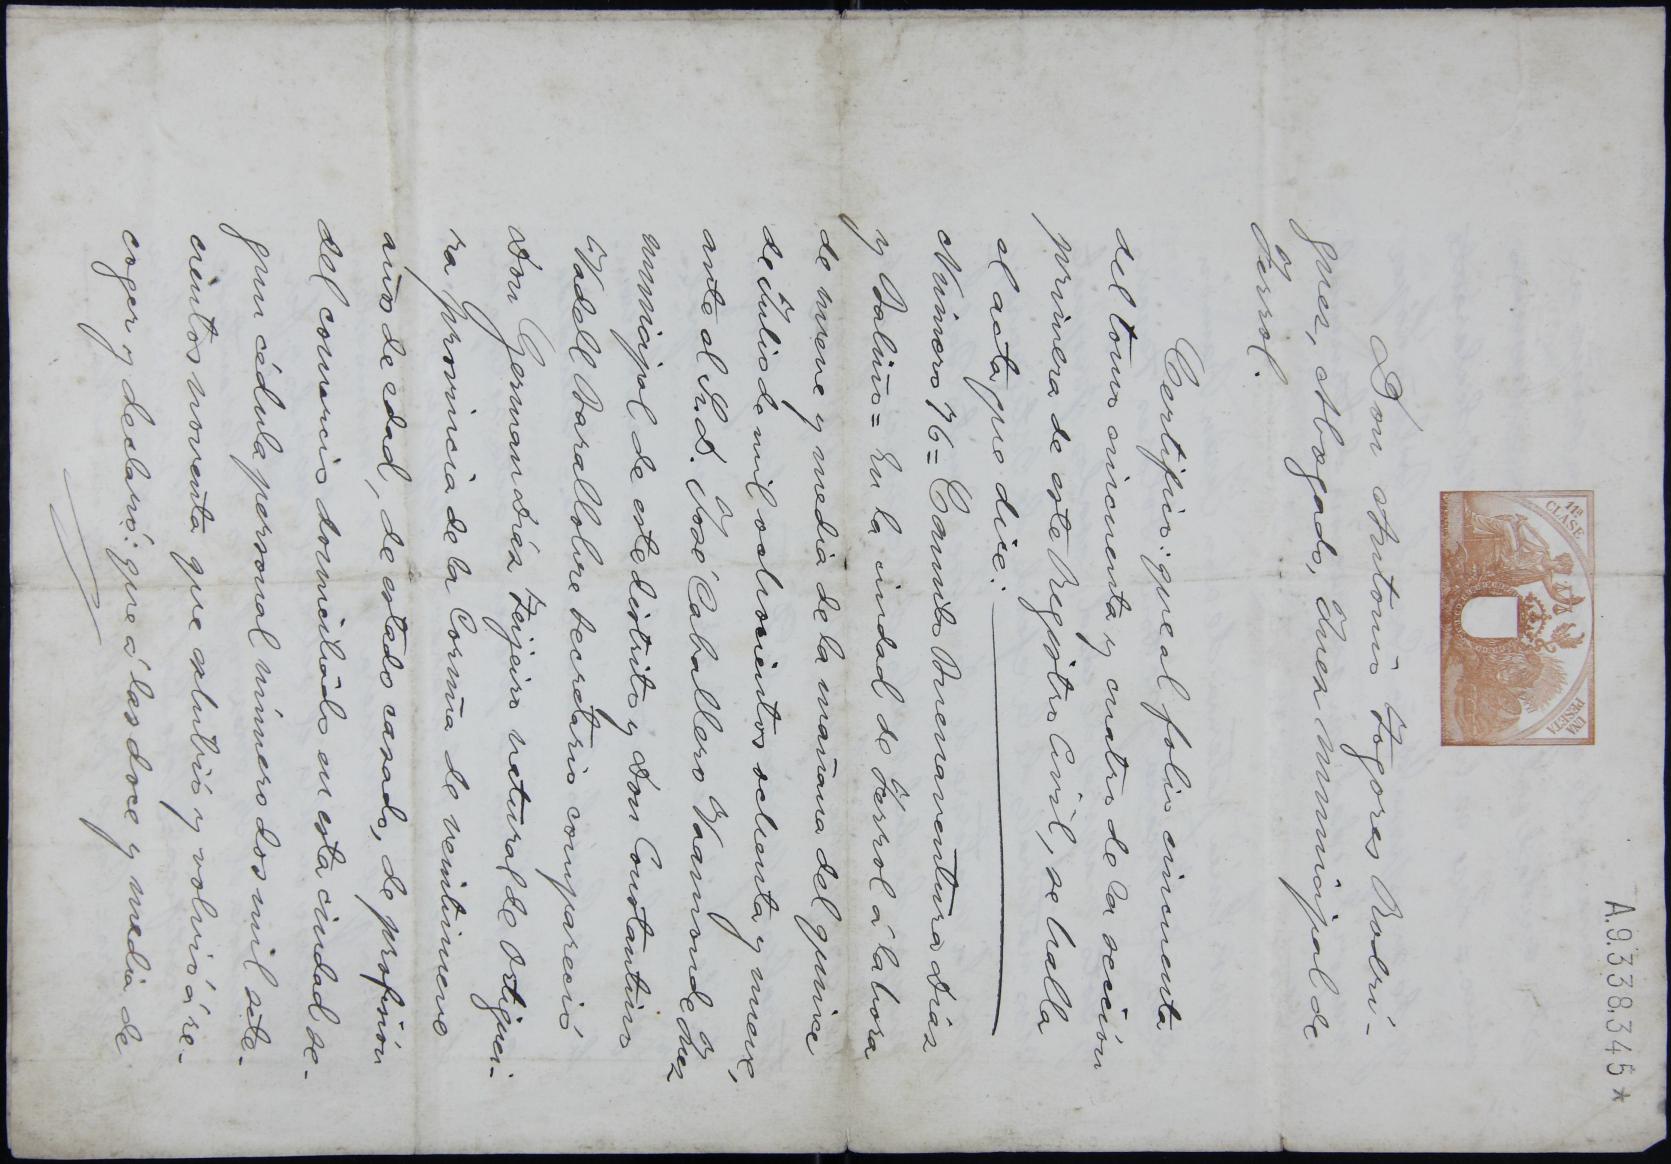 A.9.338.345 *
11ª CLASE
UNA PESETA
Don Antonio Togores Rodrí-
guez, Abogado, Juez Municipal de
Ferrol.
Certifico: que al folio cincuenta
del tomo cincuenta y cuatro de la sección
primera de este Registro Civil, se halla
el acta que dice:
Número 76 = Camilo Buenaventura Díaz
y Baliño = En la ciudad de Ferrol á la hora
de nueve y media de la mañana del quince
de Julio de mil ochocientos ochenta y nueve,
ante el Sr. D. José Caballero Vaamonde Juez
municipal de este distrito y Don Constantino
Vadell Barallobre secretario compareció
Don German Díaz Teijeiro natural de Ortiguei-
ra provincia de la Coruña de veintinueve
años de edad, de estado casado, de profesión
del comercio domiciliado en esta ciudad se-
gun cédula personal número dos mil sete-
cientos noventa que exhibió y volvió á re-
coger y declaró: que á las doce y media de